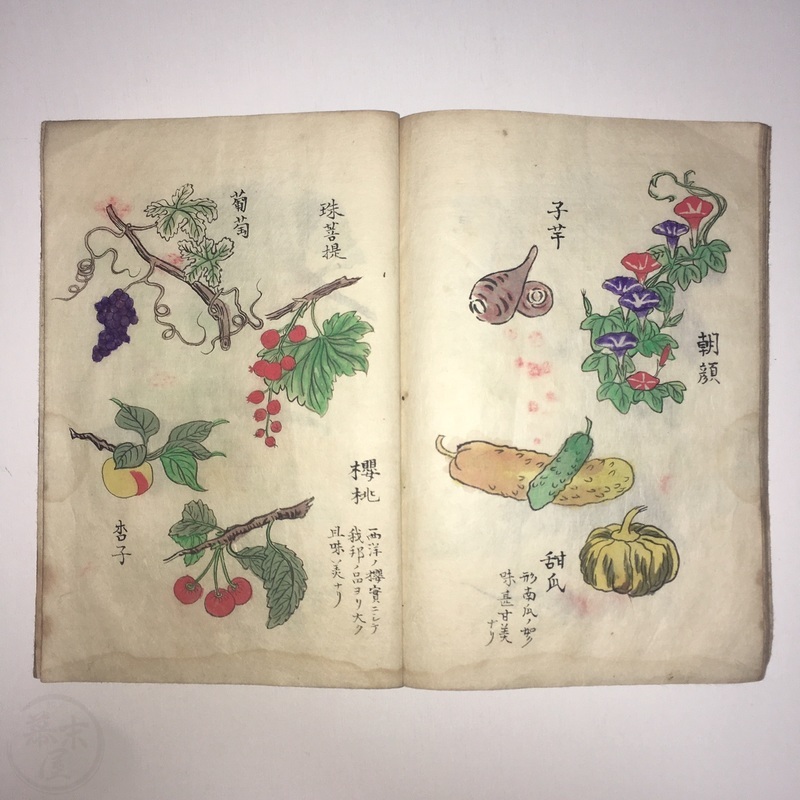 朝顔
子芋
甜瓜
形南瓜ノ如ク
味甚甘美
ナリ
珠菩提
葡萄
櫻桃
西洋ノ櫻實ニシテ
我邦ノ品ヨリ大ク
且味美ナリ
杏子
幕末屋